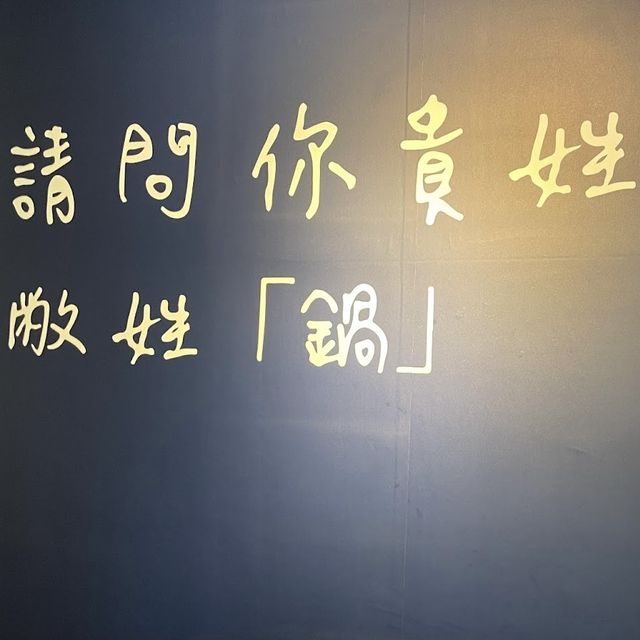 請問你貴姓
敝姓「鍋」